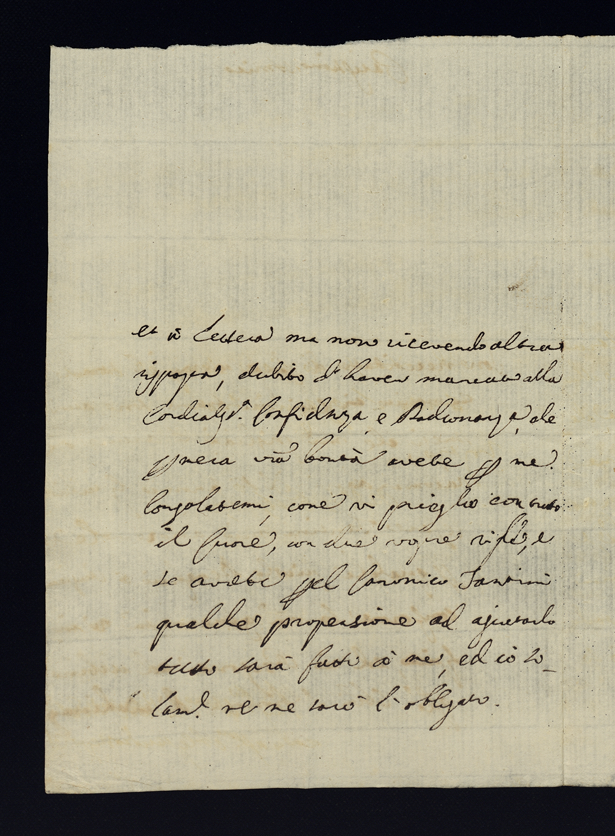 et à lettera ma non ricevendo altra
risposta, dubito d'haver mancato alla
Cordialiss.ª Confidenza, e Padronanza, che
p mera vrã bontà avete p me.
Consolatemi, come vi prieglio con tutto
il Cuore, con due vostre righe, e
se avete pel Canonico Fantini
qualche propensione ad ajutarlo
tutto sarà fatto à me, ed io so-
lam.e ve ne sarò l'obbligato.